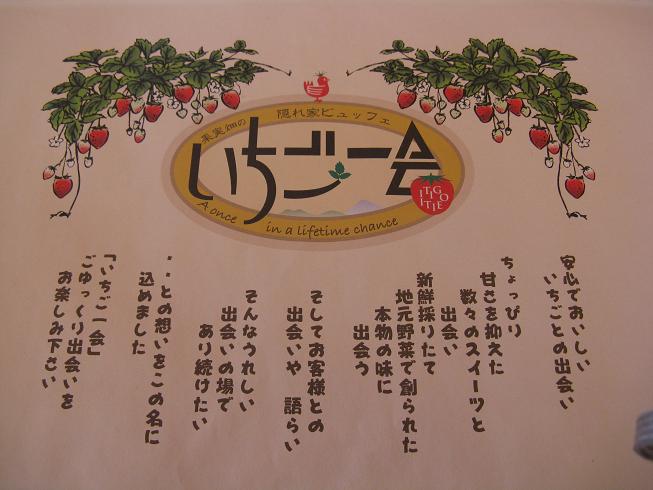 果実畑の
隠れ家ビュッフェ
いちご一会
ITIGO
ITIE
A once
in a lifetime chance
安心でおいしい
いちごとの出会い
ちょっぴり
甘さを抑えた
数々のスイーツと
出会い
新鮮採りたて
地元野菜で創られた
本物の味に
出会う
そしてお客様との
出会いや 語らい
そんなうれしい
出会いの場で
あり続けたい
・・との想いをこの名に
込めました
「いちご一会」
ごゆっくり出会いを
お楽しみ下さい